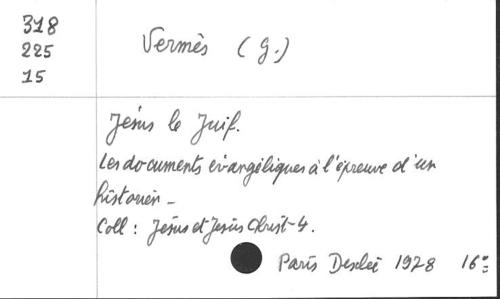 318
225
15
Vermès (G.)
Jésus le Juif.
Les documents évangéliques à l'épreuve d'un
historien -
Coll : Jésus et Jésus Christ-4.
Paris Desclée 1978 16°